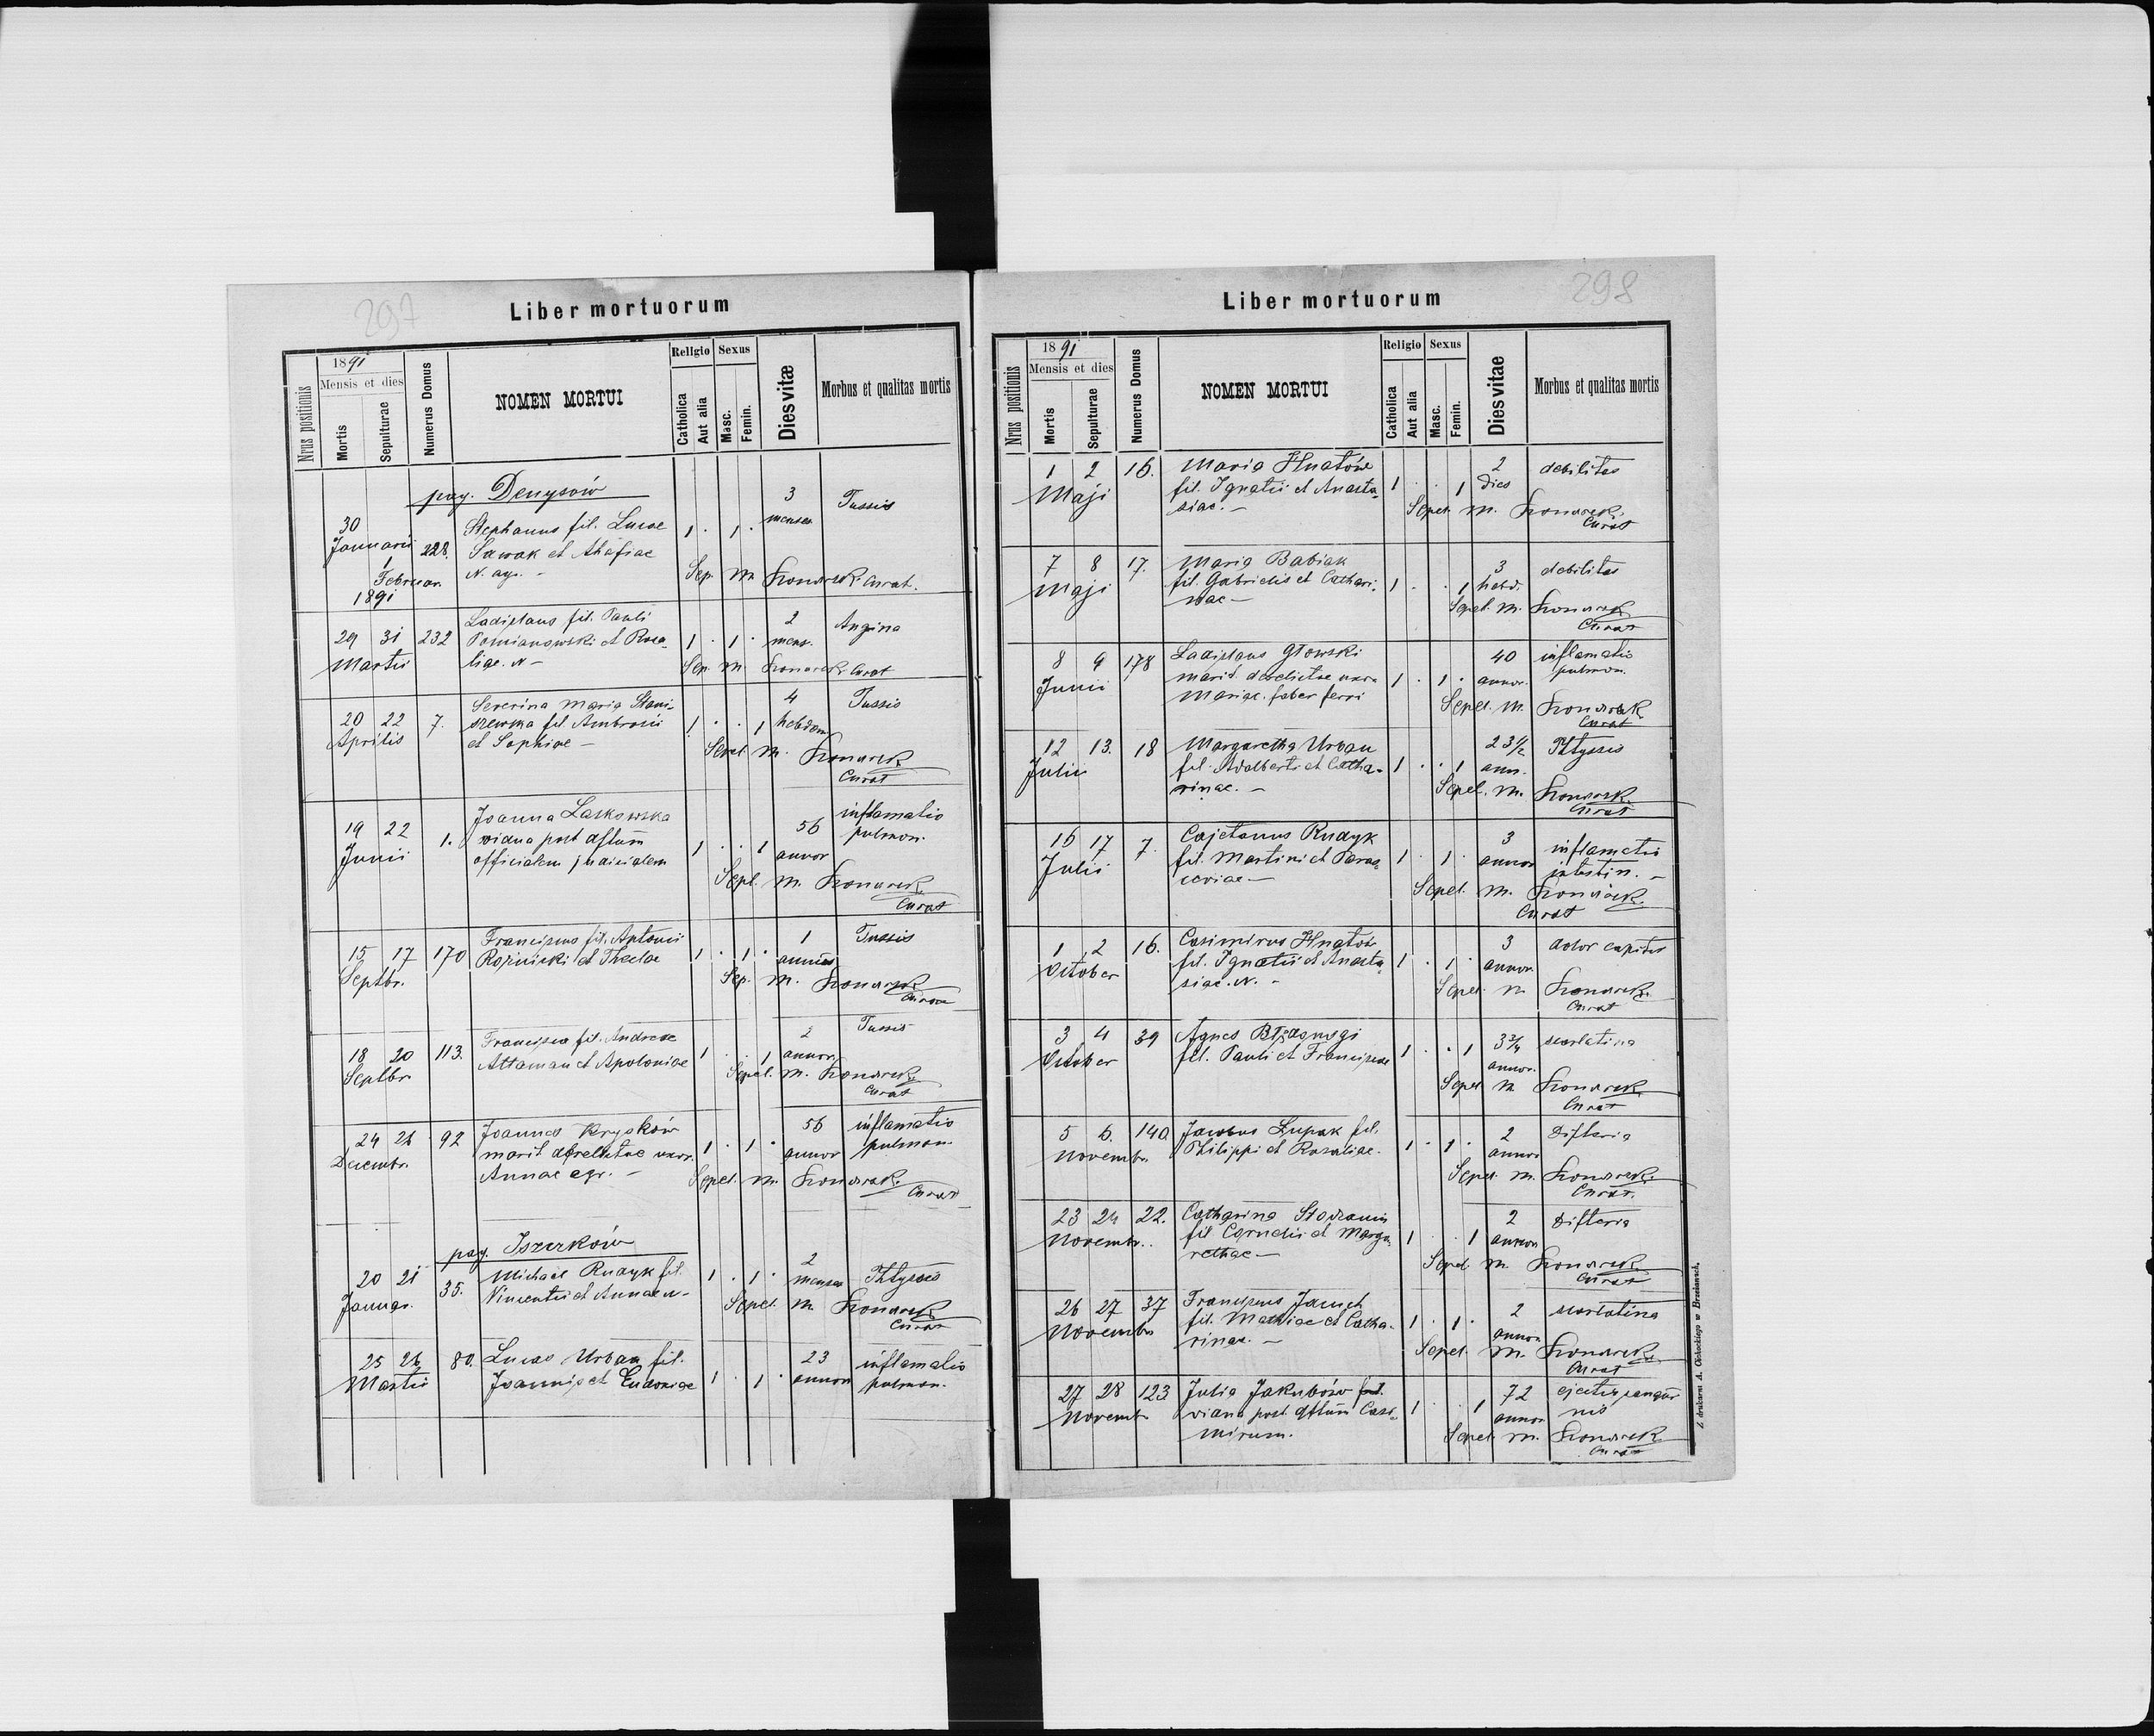 297
Liber mortuorum
Nrus positionis
1891
Mensis et dies
Mortis
Sepulturae
Numerus Domus
NOMEN MORTUI
Religio
Catholica
Aut alia
Sexus
Masc.
Femin.
Dies vitæ
Morbus et qualitas mortis
pag. Denysów
30
Januarii
1
Februar.
1891
228.
Stephanus fil. Lucae
Sawak et
N. agr. -
1 . 1 .
3
menses
Tussis
Sep. m. Konarek Curat.
29 31
Martii
232
Ladislaus fil. Pauli
Pomianowski et Rosa-
liae. N -
1 . 1 .
2
mens.
Angina
Sep. m. Konarek Curat
20 22
Aprilis
7.
Severina Maria Stani-
szewska fil. Ambrosii
et Sophiae -
1 . . 1
4
hebdom
Tussis
Sepel. m. Konarek
Curat
19 22
Junii
1.
Joanna Laskowska
vidua post dftum
officialem judicialem
1 . . 1
56
annor
inflamatio
pulmon.
Sepl. m. Konarek
Curat
15 17
Septbr.
170
Franciscus fil. Antonii
Rożnicki et Theclae
1 . 1 .
1
annus
Tussis
Sep. m. Konarek
Curat
18 20
Septbr.
113.
Francisca fil. Andreae
Attaman et Apoloniae
1 . . 1
2
annor
Tussis
Sepel. m. Konarek
Curat
24 26
Decembr.
92
Joannes Kryskow
marit. derelictae uxor.
Annae agr. -
1 . 1 .
56
annor
inflamatio
pulmon.
Sepel. m. Konarek
Curat
pag. Iszczków
20 21
Januar.
35.
Michael Rudyk fil.
Vincentii et Annae N-
1 . 1 .
2
menses
Phtysis
Sepel. m. Konarek
Curat
25 26
Martii
80.
Lucas Urban fil.
Joannis et Eudoxiae
1 . 1 .
23
annor
inflamatio
pulmon.
298
Liber mortuorum
Nrus positionis
1891
Mensis et dies
Mortis
Sepulturae
Numerus Domus
NOMEN MORTUI
Religio
Catholica
Aut alia
Sexus
Masc.
Femin.
Dies vitae
Morbus et qualitas mortis
1 2
Maji
16.
Maria Hnatów
fil. Ignatii et Anasta-
siae. -
1 . . 1
2
dies
debilitas
Sepel. m. Konarek
Curat
7 8
Maji
17.
Maria Babiak
fil. Gabrielis et Cathari-
nae -
1 . . 1
3
hebd.
debilitas
Sepel. m. Konarek
Curat
8 9
Junii
178
Ladislaus Głowski
marit. derelictae uxor
Mariae. faber ferri
1 . 1 .
40
annor.
inflamatio
pulmon.
Sepel. m. Konarek
Curat
12 13.
Julii
18
Margaretha Urban
fil. Adalberti et Catha-
rinae. -
1 . . 1
23 1/2
ann.
Phtysis
Sepel. m. Konarek
Curat
16 17
Julii
7.
Cajetanus Rudyk
fil. Martini et Paras-
ceviae. -
1 . 1 .
3
annor
inflamatio
intestin. -
Sepel. m. Konarek
Curat
1 2
October
16.
Casimirus Hnatów
fil. Ignatii et Anasta-
siae. N. -
1 . 1 .
3
annor.
dolor capitis
Sepel. m Konarek
Curat
3 4
October
39
Agnes
fil. Pauli et Franciscae
1 . . 1
3 3/4
annor.
scarlatina
Sepel m Konarek
Curat
5 6.
Novembr.
140.
Jacobus Łupak fil.
Philippi et Rosaliae.
1 . 1 .
2
annor
Difteria
Sepel. m. Konarek
Curat.
23 24
Novembr.
22.
Catharina
fil Cornelii et Marga-
rethae -
1 . . 1
2
annor
Difteria
Sepel m. Konarek
Curat
26 27
Novembr
37
Franciscus
fil. Mathiae et Catha-
rinae. -
1 . 1 .
2
annor
scarlatina
Sepel. m. Konarek
Curat
27 28
Novembr
123
Julia Jakubów
vidua post dftum Casi-
mirum.
1 . . 1
72
annor
ejectis sangui
nis
Sepel. m. Konarek
Curat
Z drukarni A. Cichockiego w Brzeżanach.